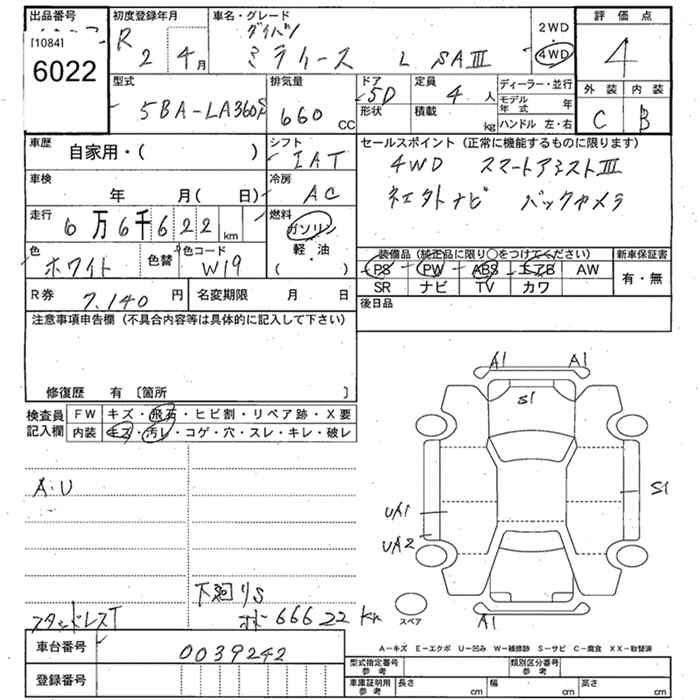 出品番号
[1084]
6022
初度登録年月
R 2 4月
車名・グレード
ダイハツ
ミライース L SAⅢ
2WD
4WD
評価点
4
外装 内装
C B
型式
5BA-LA360S
排気量
660 cc
ドア
5D
形状
定員
4人
積載
kg
ディーラー・並行
モデル年式 年
ハンドル 左・右
車歴
自家用・( )
シフト
IAT
セールスポイント (正常に機能するものに限ります)
4WD スマートアシストⅢ
ネエタトナビ バックカメラ
車検
年 月( 日)
冷房
AC
走行
6万6千622km
燃料
ガソリン
軽・油
( )
色
ホワイト
色替
色コード
W19
装備品(純正品に限り○をつけてください)
PS PW ABS エアB AW
SR ナビ TV カワ
新車保証書
有・無
R券 7,140円
名変期限 月 日
後日品
注意事項申告欄(不具合内容等は具体的に記入して下さい)
修復歴 有〔箇所 〕
検査員記入欄
FW キズ・飛石・ヒビ割・リペア跡・X要
内装 キズ・汚レ・コゲ・穴・スレ・キレ・破レ
A.U
下廻りS
スタッドレスT
66622 km
A1 A1
S1
UA1
UA2
S1
A1
スペア
車台番号 0039242
登録番号
A-キズ E-エクボ U-凹み W-補修跡 S-サビ C-腐食 XX-取替済
型式指定番号 参考
類別区分番号 参考
車庫証明用 参考
長さ cm 幅 cm 高さ cm